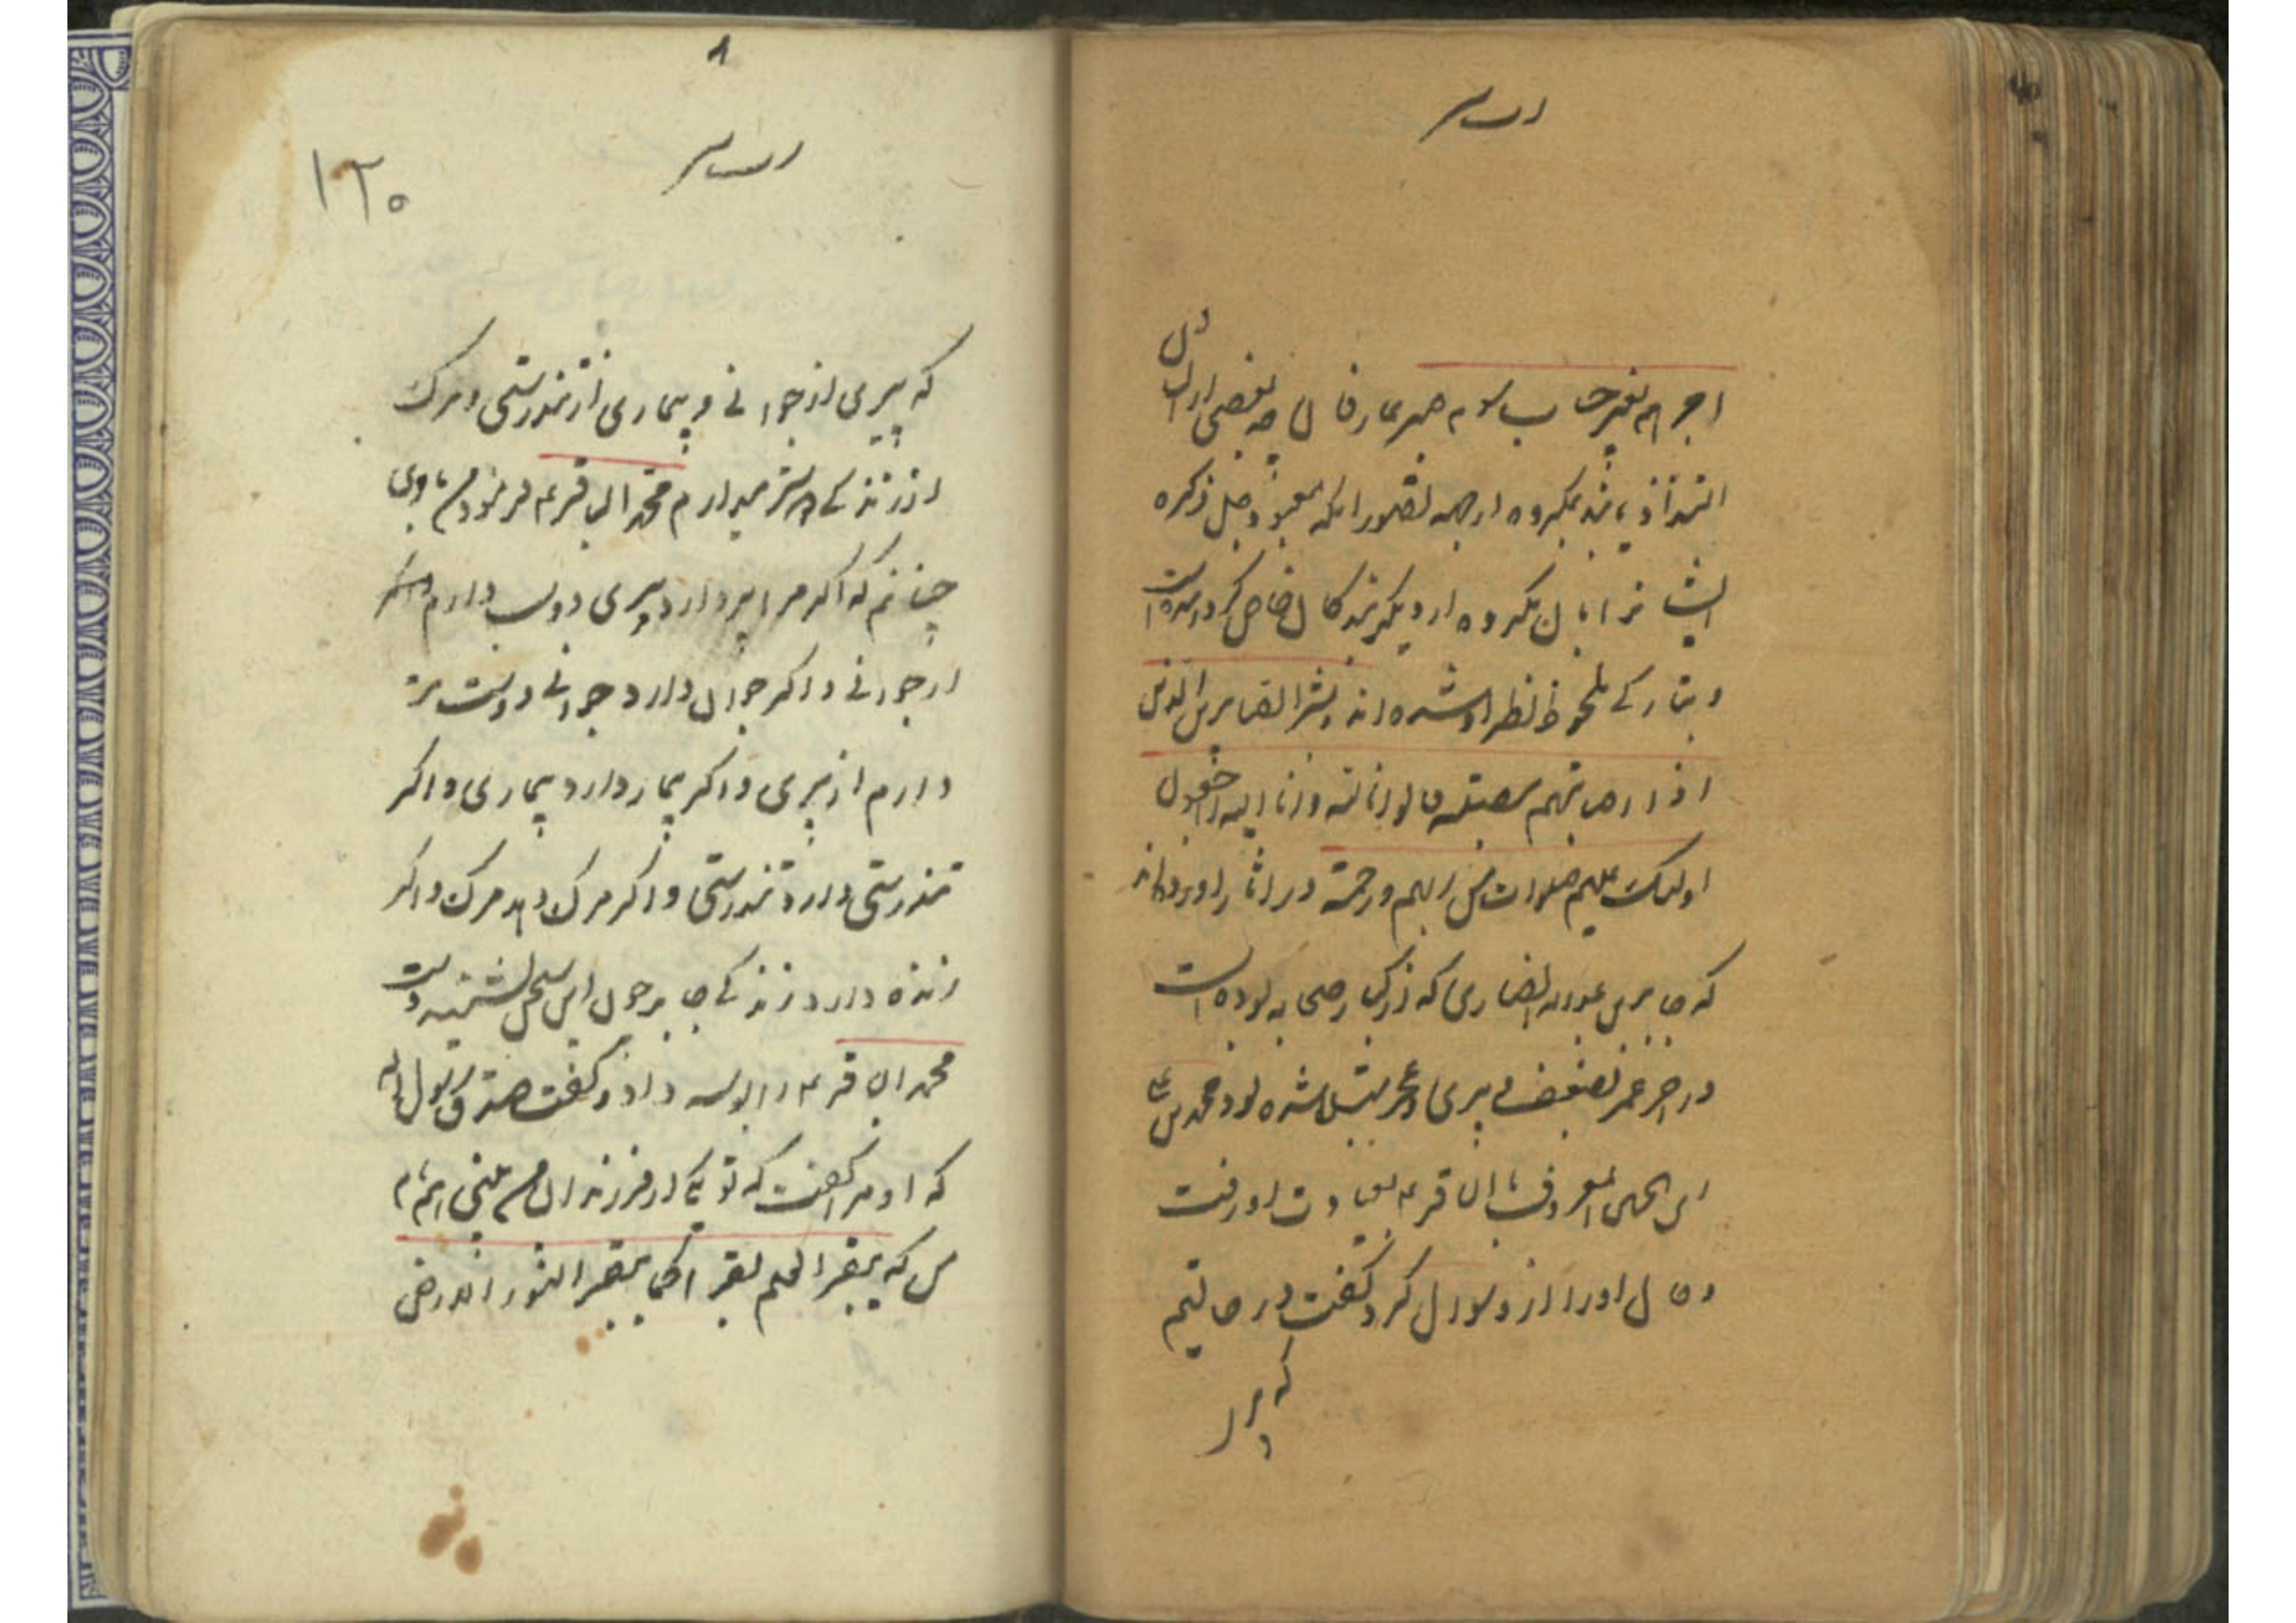 اجرهم بغیر حساب
التذاذ یابند بمکروه از جهه تصور انکه معبود جل ذکره
ایشانرا بان مکروه از دیگر بندگان خاص گردانیده است
و بتازگی ملحوظ نظر او شده اند و بشر الصابرین الذین
اذا اصابتهم مصیبة قالوا انا لله و انا الیه راجعون
اولئک علیهم صلوات من ربهم ورحمة در اثار اورده اند
که جابر بن عبد الله انصاری که از کبار صحابه بوده است
در اخر عمر بضعف پیری و عجز مبتلا شده بود محمد بن علی
ابن الحسین المعروف بالباقر عم بعیادت او رفت
و حال او را از و سوال کرد گفت در حالتیم
که پیر
۱۲۰
که پیری از جوانی و بیماری از تندرستی و مرگ
از زندگی دوستر میدارم محمد الباقر عم فرمود من باری
چنانم که اگر مرا پیر دارد پیری دوست دارم
از جوانی و اگر جوان دارد جوانی دوست تر
دارم از پیری و اگر بیمار دارد بیماری و اگر
تندرستی دارد تندرستی و اگر مرگ دهد مرگ و اگر
زنده دارد زندگی جابر چون این سخن بشنید
محمد الباقر عم را بوسه داد و گفت صدق رسول الله
که او مرا گفت که تو یکی از فرزندان من بینی همنام
من که یبقر العلم بقرا کما یبقر الثور الارض